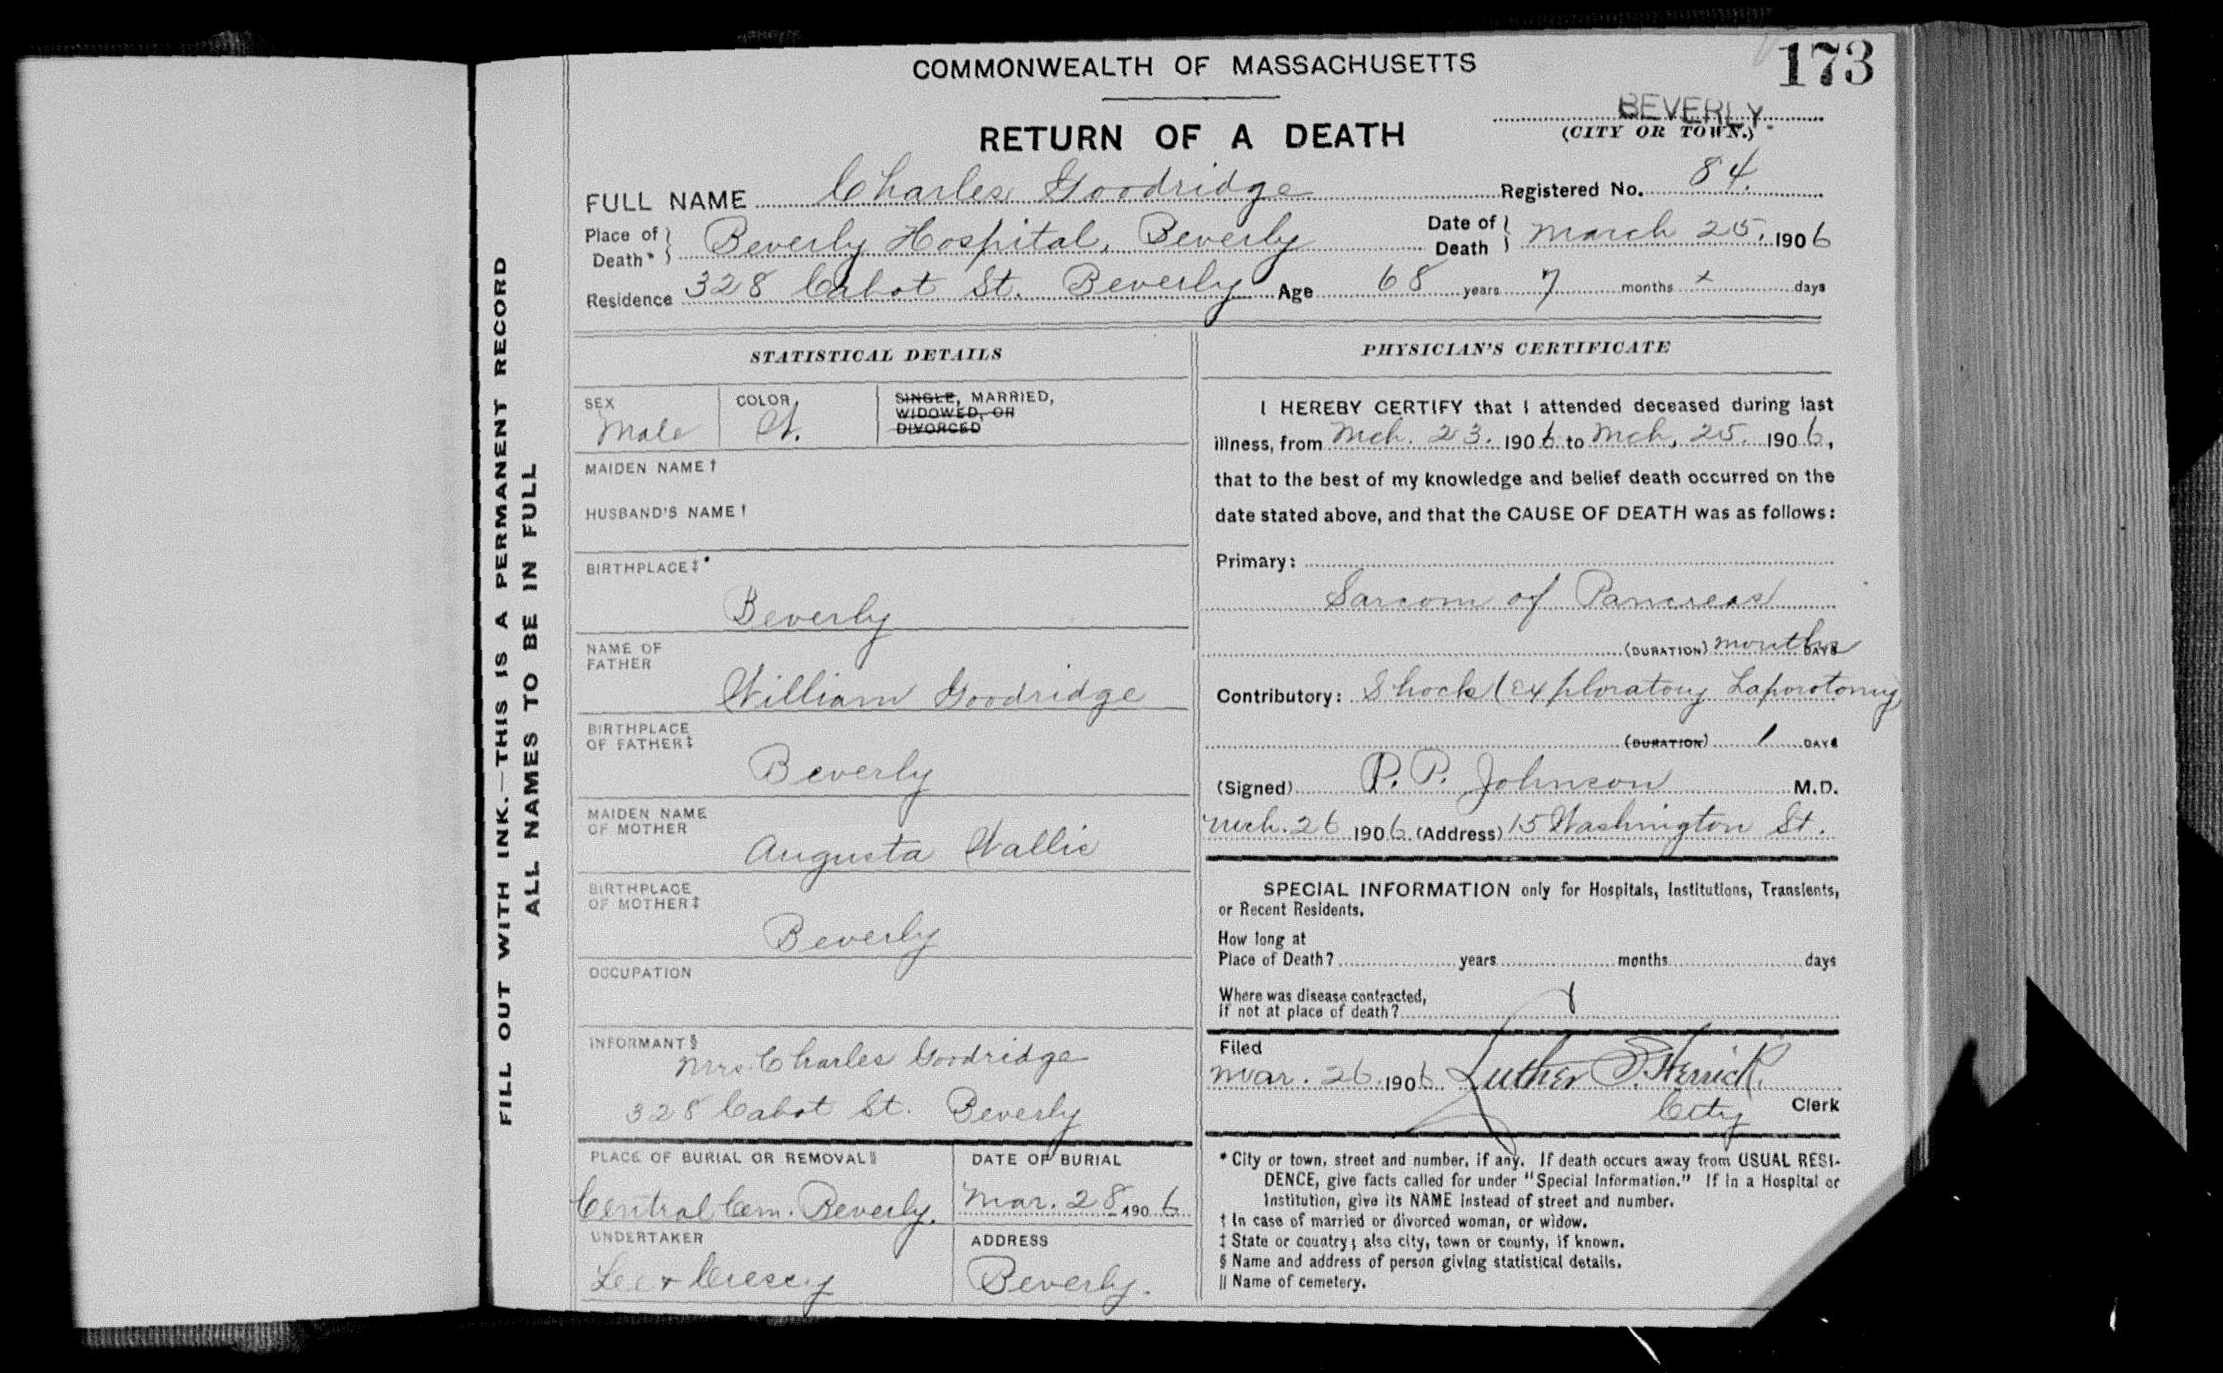 173
COMMONWEALTH OF MASSACHUSETTS
BEVERLY.
(CITY OR TOWN.)
RETURN OF A DEATH
FULL NAME Charles Goodridge Registered No. 84.
Place of Death* Beverly Hospital, Beverly Date of Death March 25, 1906
Residence 328 Cabot St. Beverly Age 68 years 7 months x days
FILL OUT WITH INK.—THIS IS A PERMANENT RECORD
ALL NAMES TO BE IN FULL
STATISTICAL DETAILS
SEX
Male
COLOR
W.
SINGLE, MARRIED,
WIDOWED, OR
DIVORCED
MAIDEN NAME †
HUSBAND'S NAME †
BIRTHPLACE ‡
Beverly
NAME OF
FATHER
William Goodridge
BIRTHPLACE
OF FATHER‡
Beverly
MAIDEN NAME
OF MOTHER
Augusta Wallis
BIRTHPLACE
OF MOTHER‡
Beverly
OCCUPATION
INFORMANT §
Mrs. Charles Goodridge
328 Cabot St. Beverly
PLACE OF BURIAL OR REMOVAL ||
Central Cem. Beverly.
DATE OF BURIAL
Mar. 28 1906
UNDERTAKER
Lee & Cressy
ADDRESS
Beverly.
PHYSICIAN'S CERTIFICATE
I HEREBY CERTIFY that I attended deceased during last
illness, from Mch. 23. 1906 to Mch. 25. 1906,
that to the best of my knowledge and belief death occurred on the
date stated above, and that the CAUSE OF DEATH was as follows:
Primary:
Sarcom of Pancreas
(DURATION) months DAYS
Contributory: Shock (Exploratory Laporotomy)
(DURATION) 1 DAYS
(Signed) P. P. Johnson M.D.
Mch. 26 1906 (Address) 15 Washington St.
SPECIAL INFORMATION only for Hospitals, Institutions, Transients,
or Recent Residents.
How long at
Place of Death? years months days
Where was disease contracted,
if not at place of death?
Filed
Mar. 26. 1906 Luther S. Herrick
City Clerk
* City or town, street and number, if any. If death occurs away from USUAL RESI-
DENCE, give facts called for under "Special Information." If in a Hospital or
Institution, give its NAME instead of street and number.
† In case of married or divorced woman, or widow.
‡ State or country; also city, town or county, if known.
§ Name and address of person giving statistical details.
|| Name of cemetery.